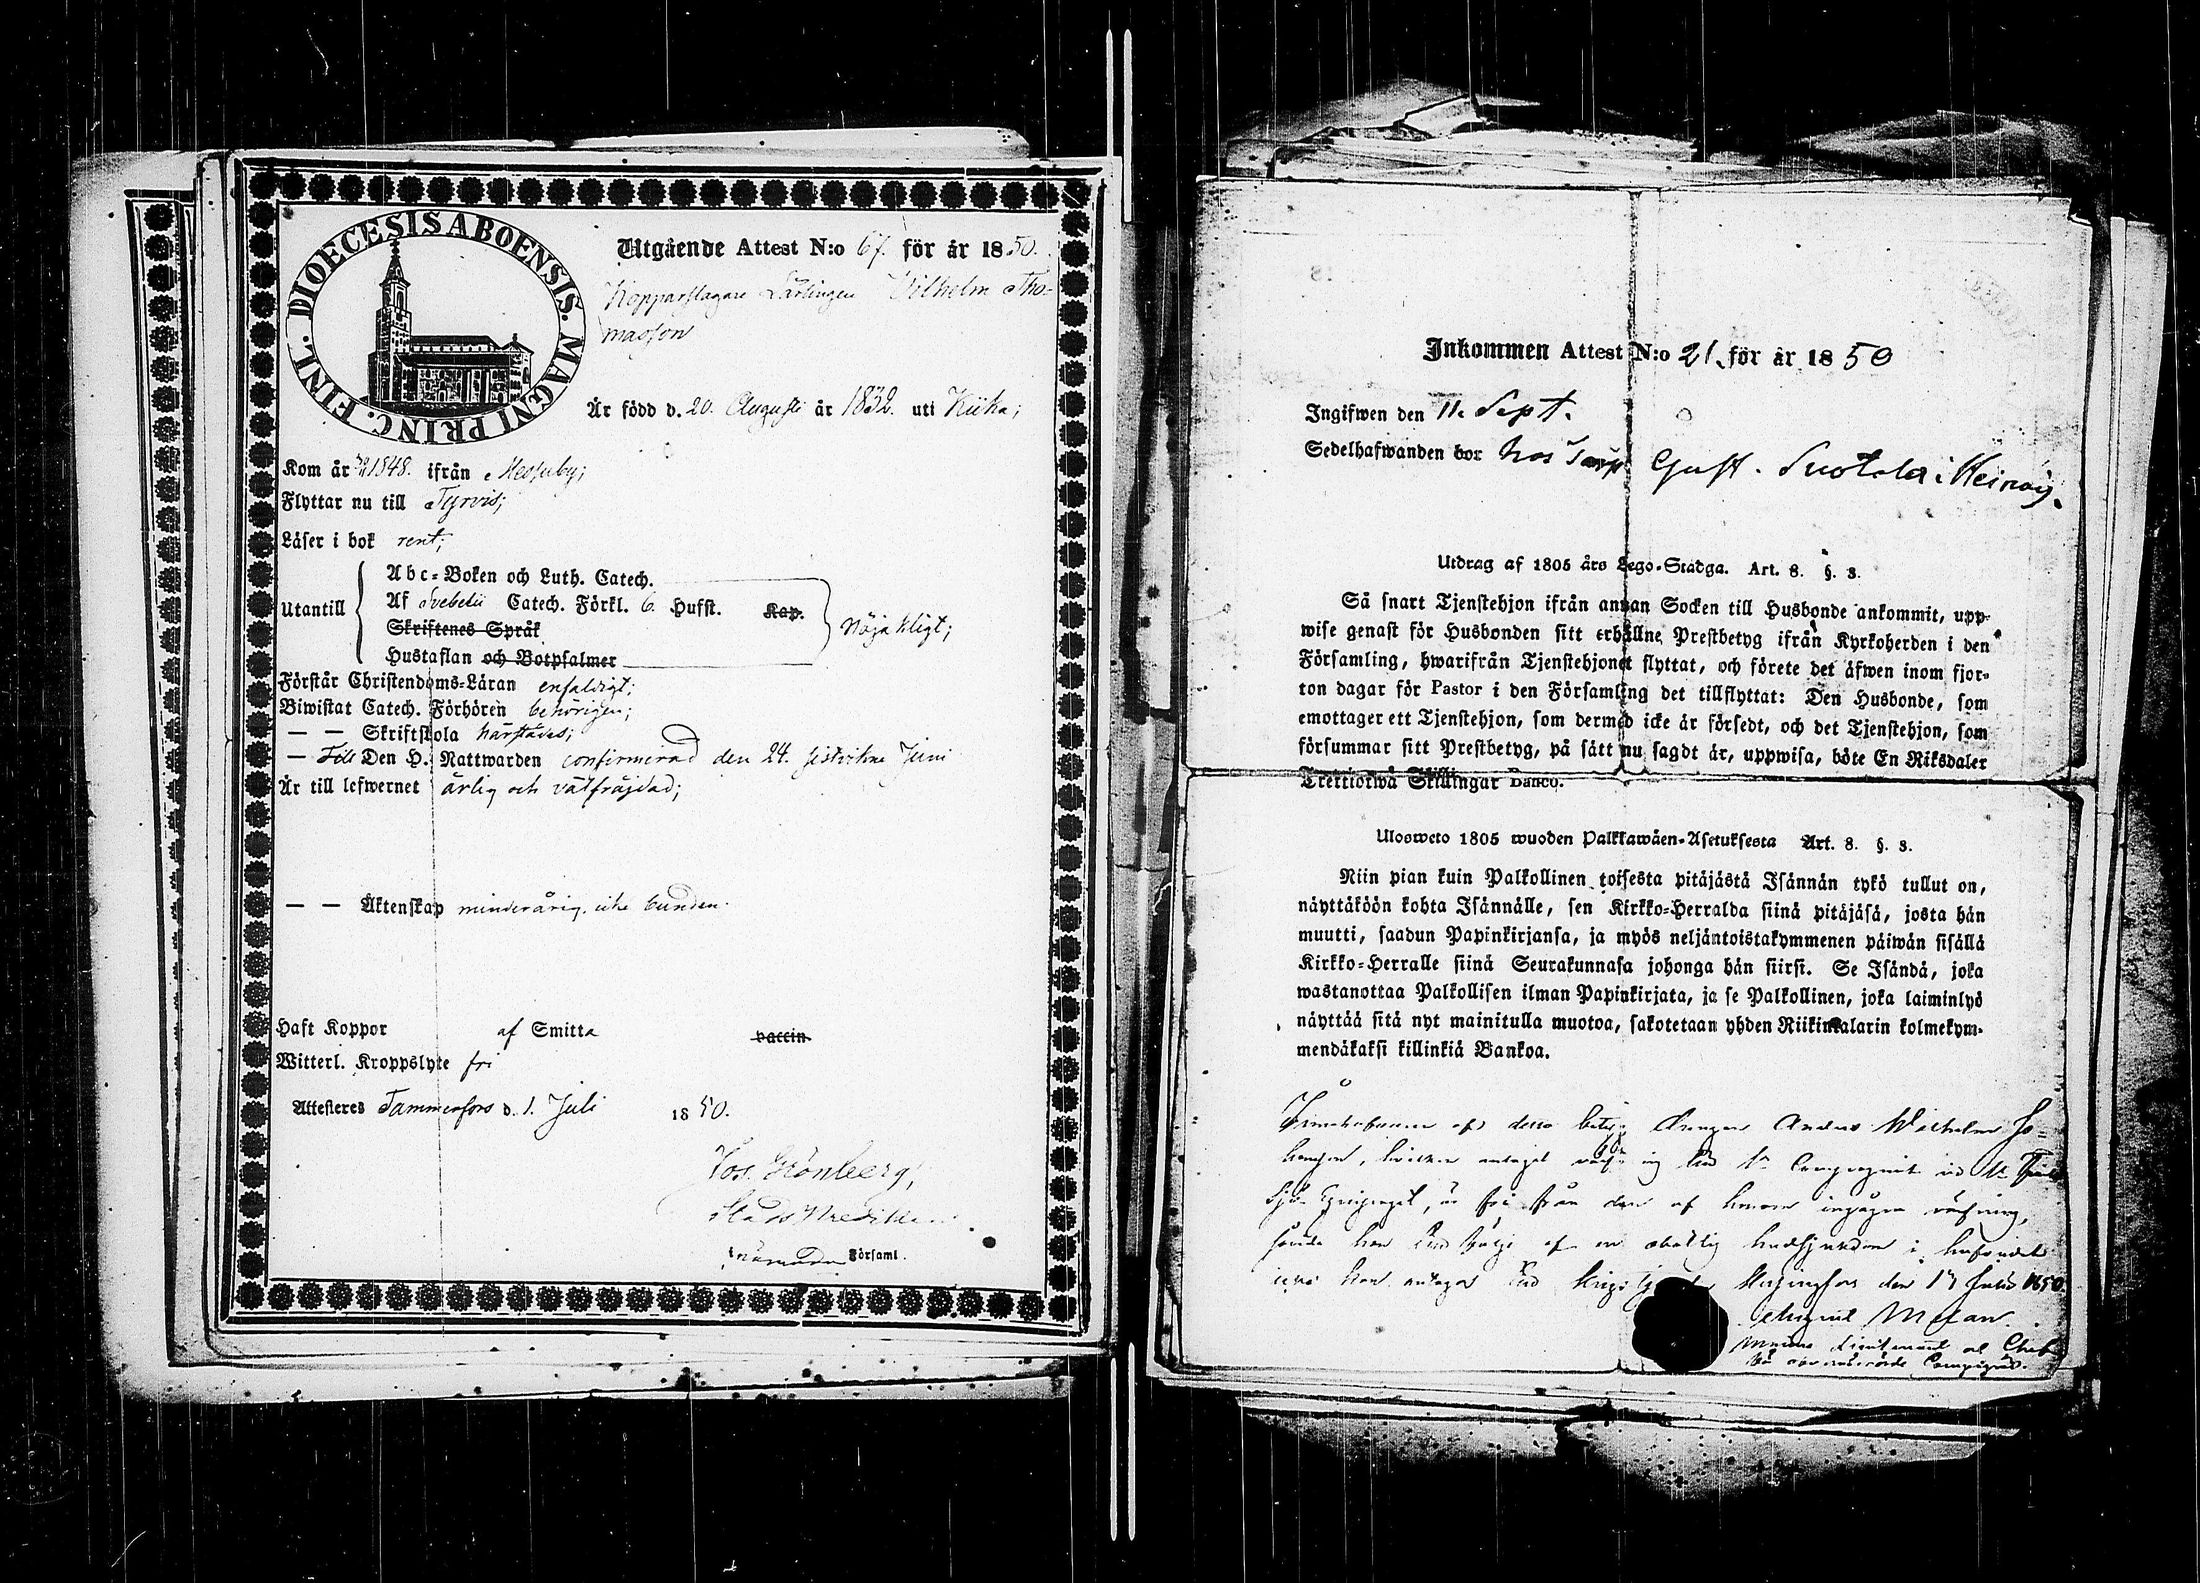 DIOECESIS ABOENSIS. MAGNI PRINC. FINL.
Utgående Attest N:o 67. för år 1850.
Kopparslagare Lärlingen Wilhelm Tho-
masson
Är född d. 20. Augusti år 1832. uti Kiika;
Kom år 1848. ifrån Messuby;
Flyttar nu till Tyrvis;
Läser i bok rent;
Utantill
Abc-Boken och Luth. Catech.
Af Svebelii Catech. Förkl. 6. Hufst. Kap.
Skriftenes Språk
Hustaflan och Botpsalmer
Nöjaktligt;
Förstår Christendoms-Läran enfaldigt;
Biwistat Catech. Förhören behörigen;
— — Skriftskola härstädes;
— Till Den H. Nattwarden confirmerad den 24. sistvikne Juni
Är till lefwernet ärlig och välfräjdad;
— — Äktenskap minderårig, icke bunden.
Haft Koppor af Smitta vaccin
Witterl. Kroppslyte fri
Attesteres Tammerfors d. 1. Juli 1850.
Jos. Grönberg,
Stads
i nämnda Församl.
Inkommen Attest N:o 21. för år 1850
Ingifwen den 11. Sept.
Sedelhafwanden bor hos Torp. Gust. Suotala i Heinoo.
Utdrag af 1805 års Lego-Stadga. Art. 8. §. 3.
Så snart Tjenstehjon ifrån annan Socken till Husbonde ankommit, upp-
wise genast för Husbonden sitt erhållne Prestbetyg ifrån Kyrkoherden i den
Församling, hwarifrån Tjenstehjonet flyttat, och förete det äfwen inom fjor-
ton dagar för Pastor i den Församling det tillflyttat: Den Husbonde, som
emottager ett Tjenstehjon, som dermed icke är försedt, och det Tjenstehjon, som
försummar sitt Prestbetyg, på sätt nu sagdt är, uppwisa, böte En Riksdaler
Trettiotwå Skillingar Banco.
Ulosweto 1805 wuoden Palkkawäen-Asetuksesta Art. 8. §. 3.
Niin pian kuin Palkollinen toisesta pitäjästä Isännän tykö tullut on,
näyttäköön kohta Isännälle, sen Kirkko-Herralda siinä pitäjäsä, josta hän
muutti, saadun Papinkirjansa, ja myös neljäntoistakymmenen päiwän sisällä
Kirkko-Herralle siinä Seurakunnasa johonga hän siirsi. Se Isändä, joka
wastanottaa Palkollisen ilman Papinkirjata, ja se Palkollinen, joka laiminlyö
näyttää sitä nyt mainitulla muotoa, sakotetaan yhden Riikintalarin kolmekym-
mendäkaksi killinkiä Bankoa.
Innehafvaren af detta betyg Drengen Anders Wilhelm Jo-
hansson, hvilken antagit
Equipaget, är fri från den af honom ingågna värfning,
som han till följe af en obotlig hudsjukdom i
han antagas till krigstjenst. Helsingfors den 17 Julii 1850.
August Melan.
Lieutenant och Chef